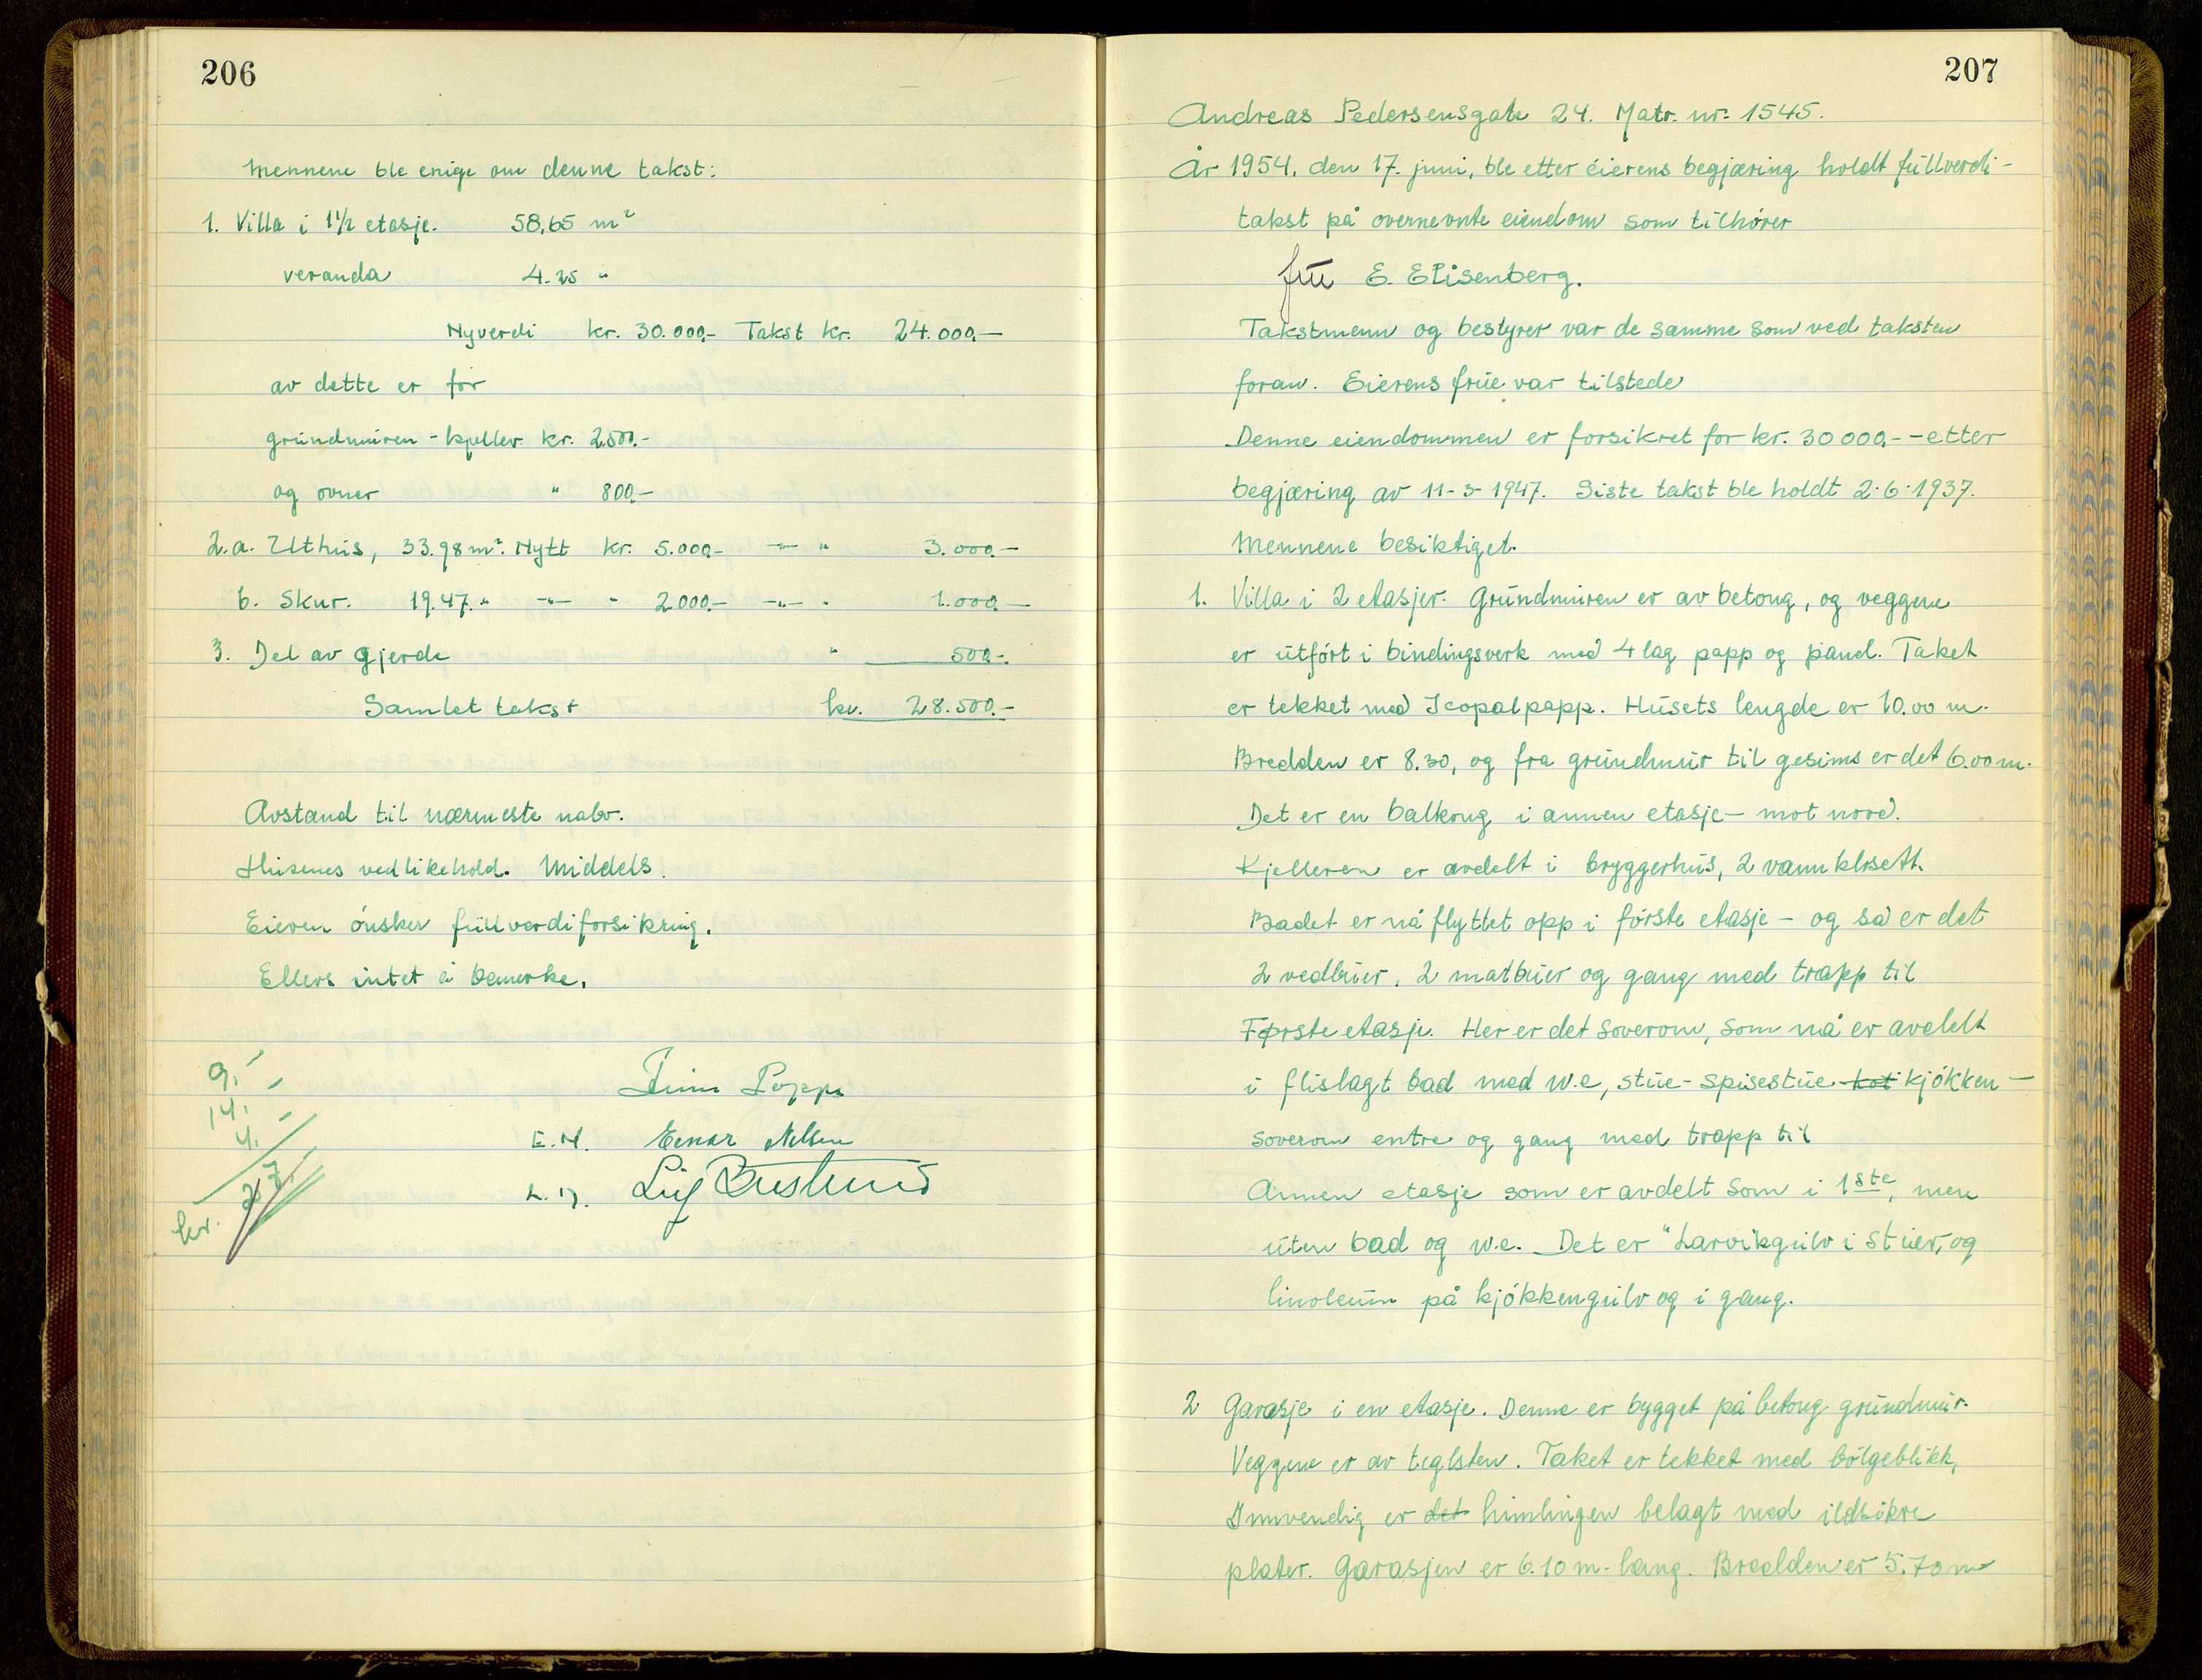 206
Mennene ble enige om denne takst:
1. Villa i 1 1/2 etasje. 58,65 m²
veranda 4.25 "
Nyverdi kr. 30.000,- Takst kr. 24.000.—
av dette er for
grundmuren - kjeller kr. 2500.-
og ovner " 800.-
2.a. Uthus, 33.98 m². Nytt kr. 5.000.- -"- " 3.000.—
b. Skur. 19.47. " -"- " 2.000.- -"- " 1.000.—
3. Del av gjerde " 500.-
Samlet takst kr. 28.500.-
Avstand til nærmeste nabo.
Husenes vedlikehold. Middels.
Eieren ønsker fullverdiforsikring.
Ellers intet å bemerke.
9.-
14.-
4.-
kr. 27.
E.N. Einar Nilsen
207
Andreas Pedersensgate 24. Matr. nr. 1545.
År 1954, den 17. juni, ble etter eierens begjæring holdt fullverdi-
takst på overnevnte eiendom som tilhører
fru E. Elisenberg.
Takstmenn og bestyrer var de samme som ved taksten
foran. Eierens frue var tilstede
Denne eiendommen er forsikret for kr. 30000.- - etter
begjæring av 11-3-1947. Siste takst ble holdt 2.6.1937.
Mennene besiktiget.
1. Villa i 2 etasjer. Grundmuren er av betong, og veggene
er utført i bindingsverk med 4 lag papp og panel. Taket
er tekket med Icopalpapp. Husets lengde er 10.00 m.
Bredden er 8.30, og fra grundmur til gesims er det 6.00 m.
Det er en balkong i annen etasje — mot nord.
Kjelleren er avdelt i bryggerhus, 2 vannklosett.
Badet er nå flyttet opp i første etasje — og så er det
2 vedbuer, 2 matbuer og gang med trapp til
Første etasje. Her er det soverom, som nå er avdelt
i flislagt bad med w.c, stue - spisestue kot kjøkken —
soverom entre og gang med trapp til
Annen etasje som er avdelt som i 1ste, men
uten bad og w.c. Det er "Larvikgulv i stuer," og
linoleum på kjøkkengulv og i gang.
2 Garasje i en etasje. Denne er bygget på betong grundmur.
Veggene er av teglsten. Taket er tekket med bølgeblikk,
Innvendig er det himlingen belagt med ildsikre
plater. Garasjen er 6.10 m. lang. Bredden er 5.70 m